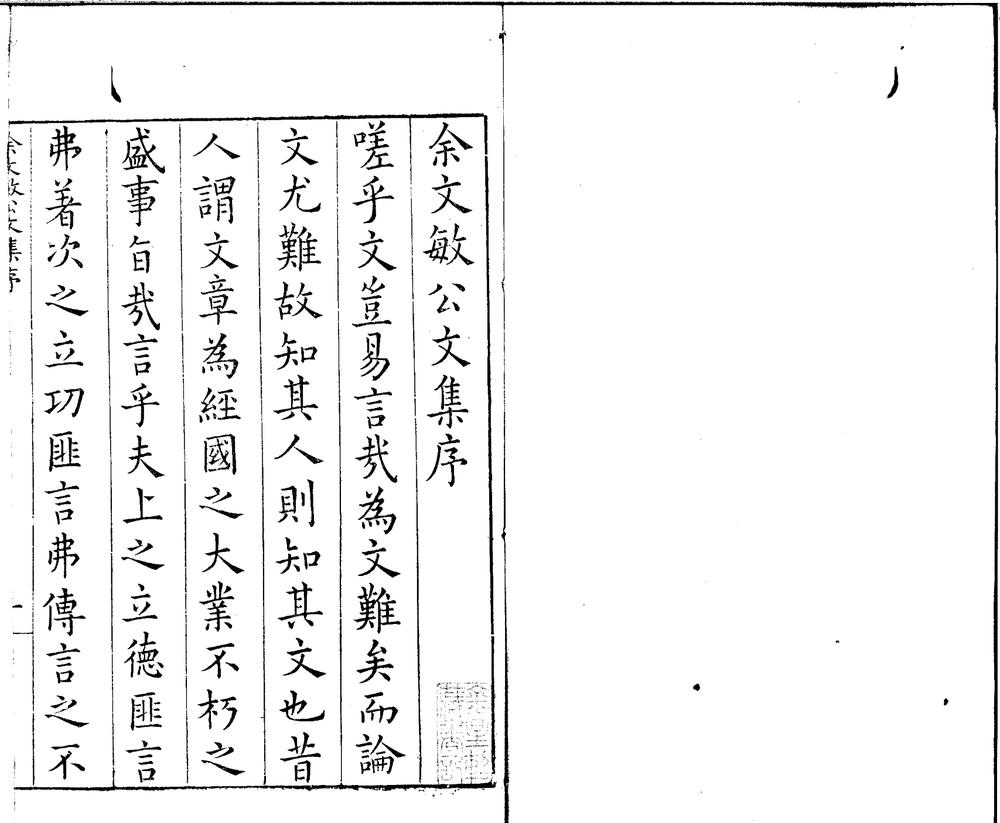 余文敏公文集序
嗟乎文豈易言㢤為文難矣而論
文尤難故知其人則知其文也昔
人謂文章為經國之大業不朽之
盛事旨㢤言乎夫上之立德匪言
弗著次之立功匪言弗傳言之不
余文敏公文集序
一